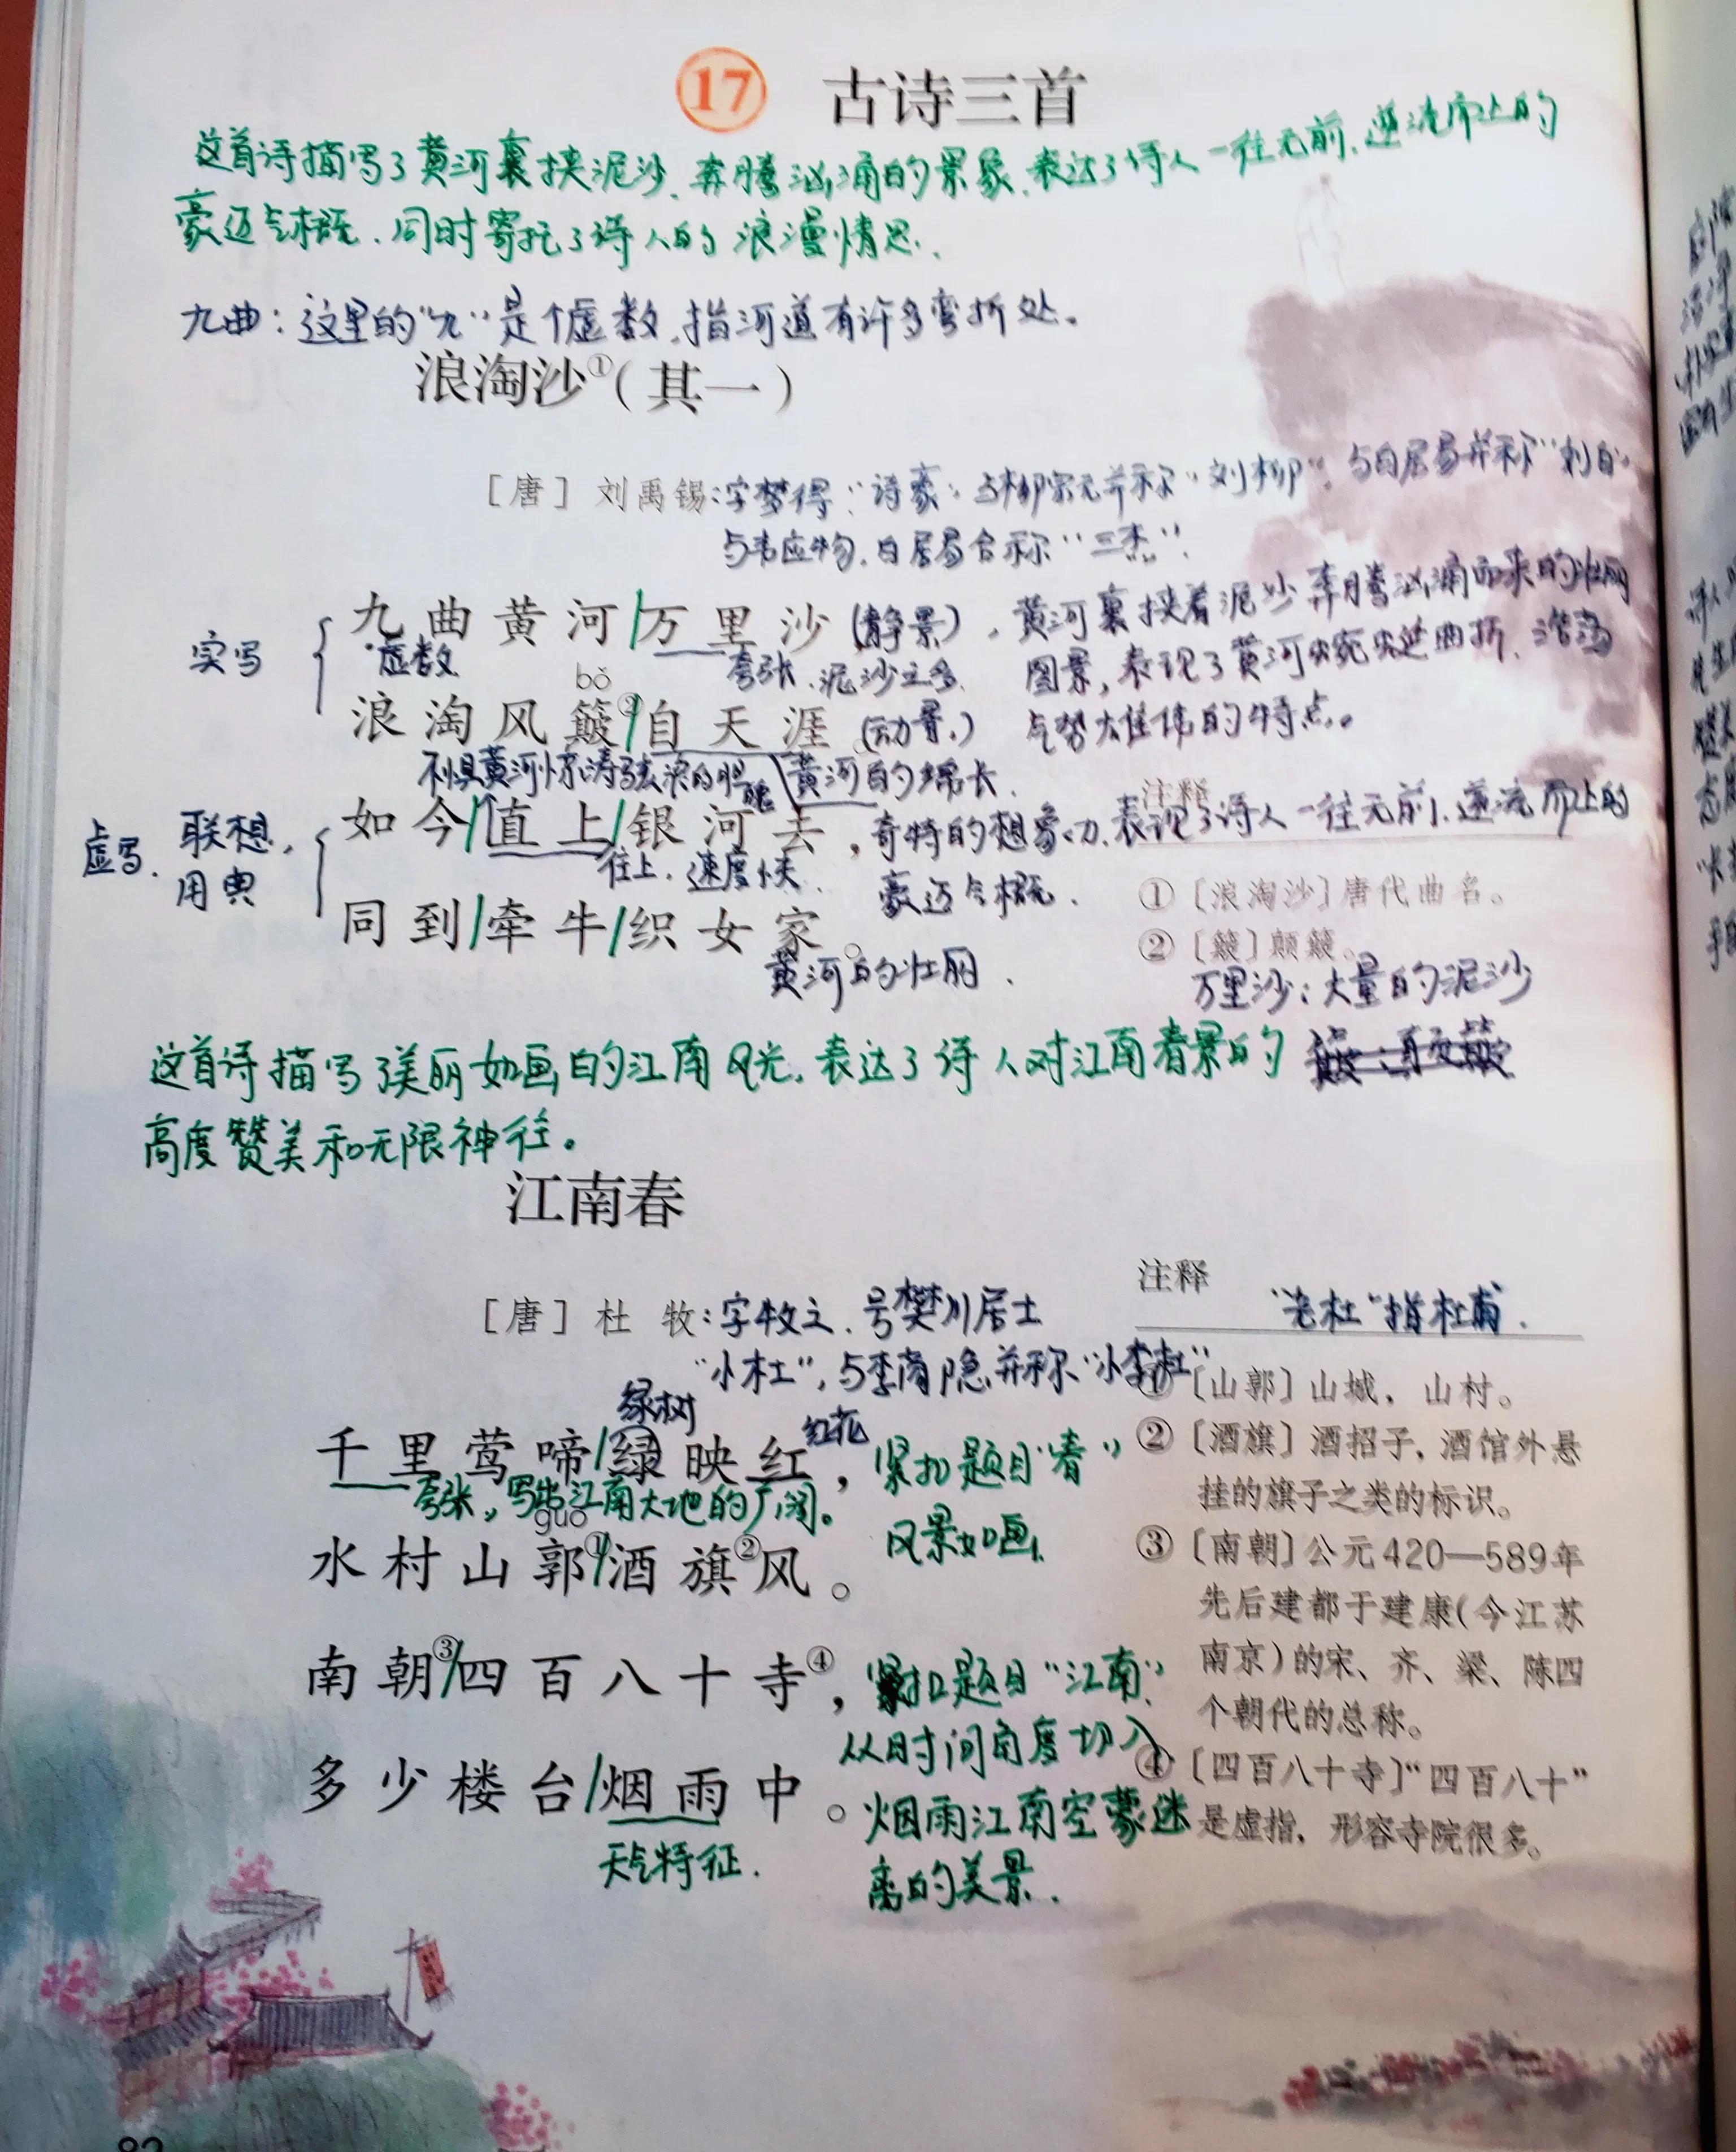 17 古诗三首
这首诗描写了黄河裹挟泥沙、奔腾汹涌的景象,表达了诗人一往无前、逆流而上的
豪迈气概,同时寄托了诗人的浪漫情思.
九曲:这里的“九”是个虚数,指河道有许多弯折处。
浪淘沙①(其一)
[唐] 刘禹锡:字梦得.“诗豪”.与柳宗元并称“刘柳”,与白居易并称“刘白”
与韦应物,白居易合称“三杰”.
九曲黄河/万里沙(静景),黄河裹挟着泥沙奔腾汹涌而来的壮丽
实写
虚数
夸张、泥沙之多. 图景,表现了黄河蜿蜒曲折、浩荡
bǒ
浪淘风簸②/自天涯(动景.) 气势大雄伟的特点。
不惧黄河惊涛骇浪的胆魄 黄河的绵长.
注释
如今/直上/银河去,奇特的想象力.表现了诗人一往无前.逆流而上的
虚写. 联想,
用典
往上.速度快. 豪迈气概.
①〔浪淘沙〕唐代曲名。
同到/牵牛/织女家。
②〔簸〕颠簸。
黄河的壮丽.
万里沙:大量的泥沙
这首诗描写了美丽如画的江南风光,表达了诗人对江南春景的
高度赞美和无限神往。
江南春
注释
[唐] 杜 牧:字牧之.号樊川居士
“老杜”指杜甫.
“小杜”,与李商隐并称“小李杜”
①〔山郭〕山城,山村。
绿树
红花
千里莺啼/绿映红,紧扣题目“春”
夸张,写出江南大地的广阔。
②〔酒旗〕酒招子,酒馆外悬
挂的旗子之类的标识。
guō
风景如画.
水村山郭①/酒旗②风。
③〔南朝〕公元420—589年
先后建都于建康(今江苏
南京)的宋、齐、梁、陈四
个朝代的总称。
南朝③/四百八十寺④,紧扣题目“江南”
从时间角度切入
多少楼台/烟雨中。烟雨江南空蒙迷
离的美景.
天气特征.
④〔四百八十寺〕“四百八十”
是虚指,形容寺院很多。